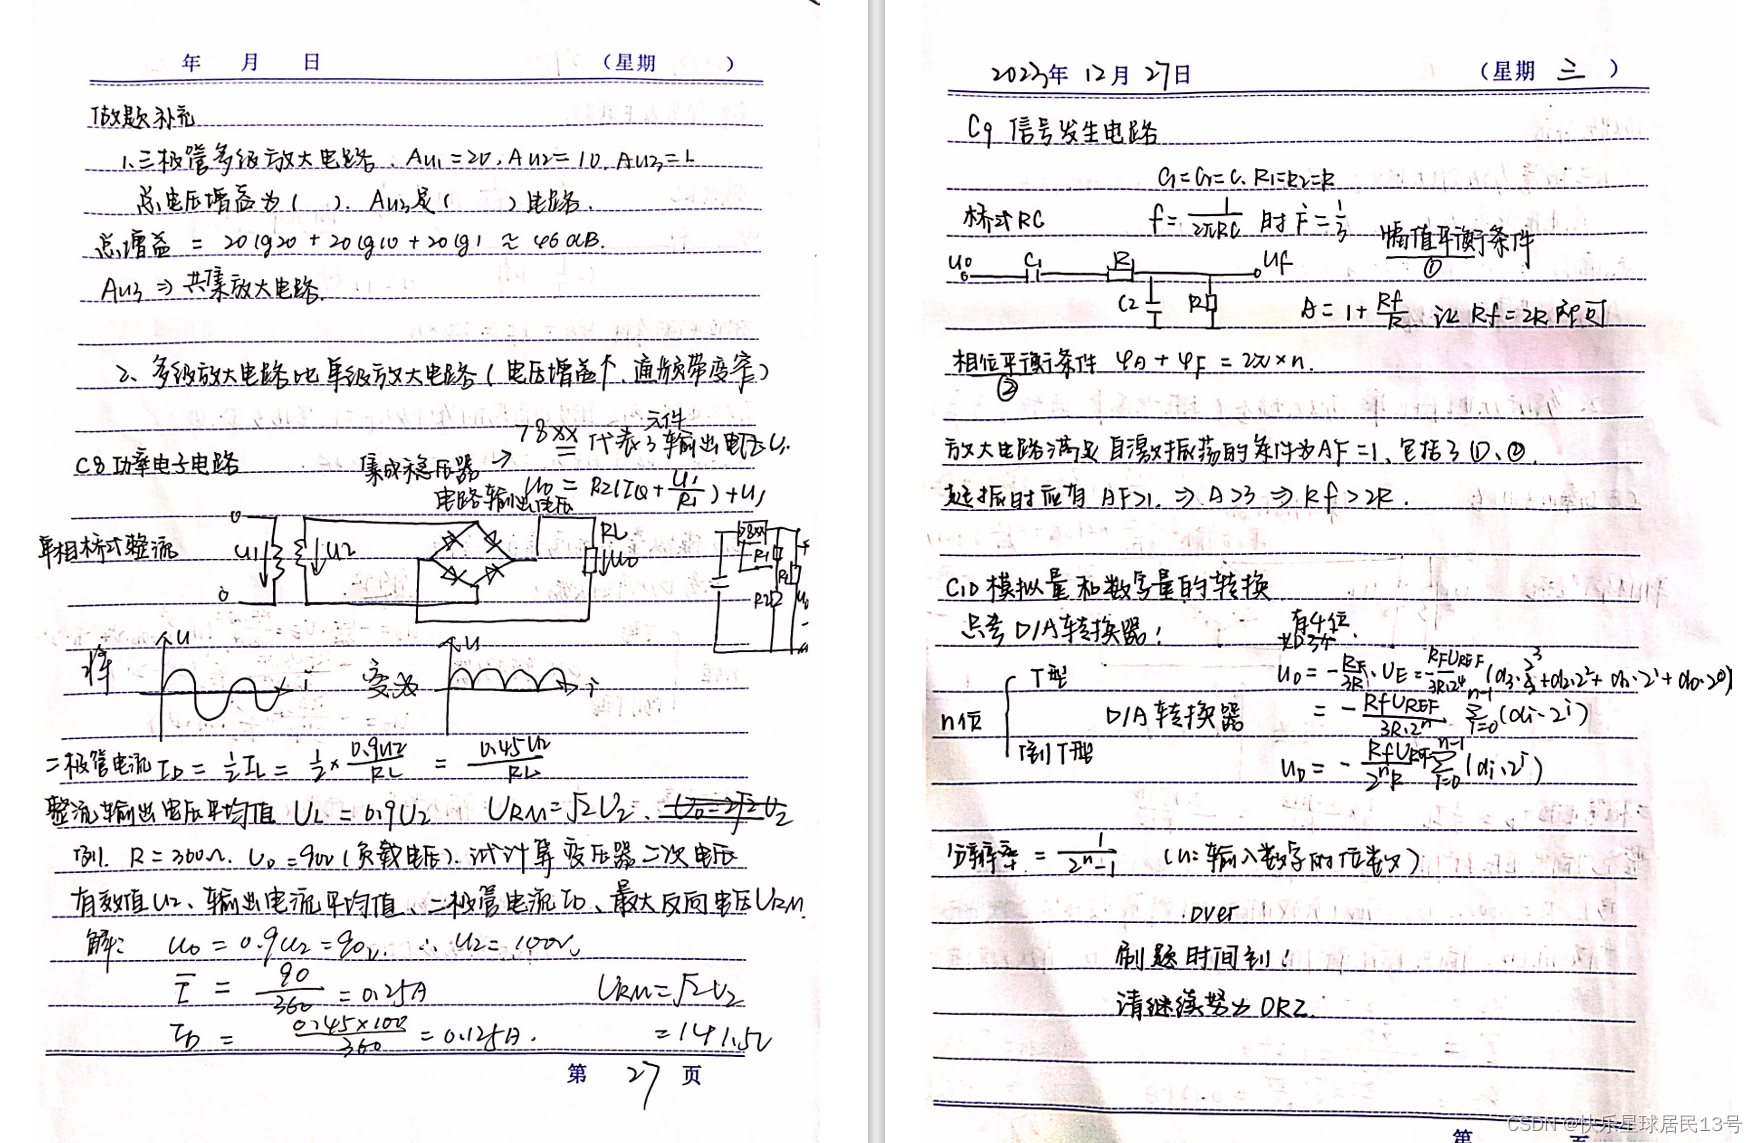 年 月 日 (星期 )
做题补充
1.三极管多级放大电路.Au1=20.Au2=10.Au3=1
总电压增益为( ).Au3是( )电路.
总增益 = 20lg20+20lg10+20lg1≈46dB.
Au3⇒共集放大电路.
2、多级放大电路比单级放大电路(电压增益个、通频带变窄)
C8功率电子电路
集成稳压器→78XX 代表了输出电压U.
元件
电路输出电压 U0=R2(IQ+U1/R1)+U1
单相桥式整流
U1 U2 RL U0
78XX R1 R2 RL U0
U i 变为 U i
二极管电流ID=1/2IL=1/2×0.9U2/RL=0.45U2/RL
整流输出电压平均值 UL=0.9U2 URM=√2U2.
例. R=360Ω. U0=90V(负载电压).试计算变压器二次电压
有效值U2、输出电流平均值、二极管电流ID、最大反向电压URM.
解: U0=0.9U2=90V. ∴U2=100V.
I=90/360=0.25A URM=√2U2
ID=0.45×100/360=0.125A. =141.5V
第 27 页
2023年 12月 27日 (星期 三 )
C9 信号发生电路
C1=C2=C. R1=R2=R
桥式RC f=1/2πRC 时 F=1/3 幅值平衡条件
①
U0 C1 R1 Uf
C2 R2 A=1+Rf/R 让Rf=2R即可
相位平衡条件 φA+φF=2π×n.
②
放大电路满足自激振荡的条件为AF=1、包括了①、②.
起振时应有AF>1.⇒A>3⇒Rf>2R.
C10模拟量和数字量的转换
只考D/A转换器!
有4位
T型 U0=-RF/3R·UE=-RFUREF/3R·2^4(d3·2^3+d2·2^2+d1·2^1+d0·2^0)
n位 D/A转换器 =-RfUREF/3R·2^n Σ(di·2^i) n-1 i=0
倒T型 U0=-RfUREF/2^nR Σ(di·2^i) n-1 i=0
分辨率=1/2^n-1 (n:输入数字的位数)
.over
刷题时间到!
请继续努力ORZ.
第 页
CSDN @快乐星球居民13号